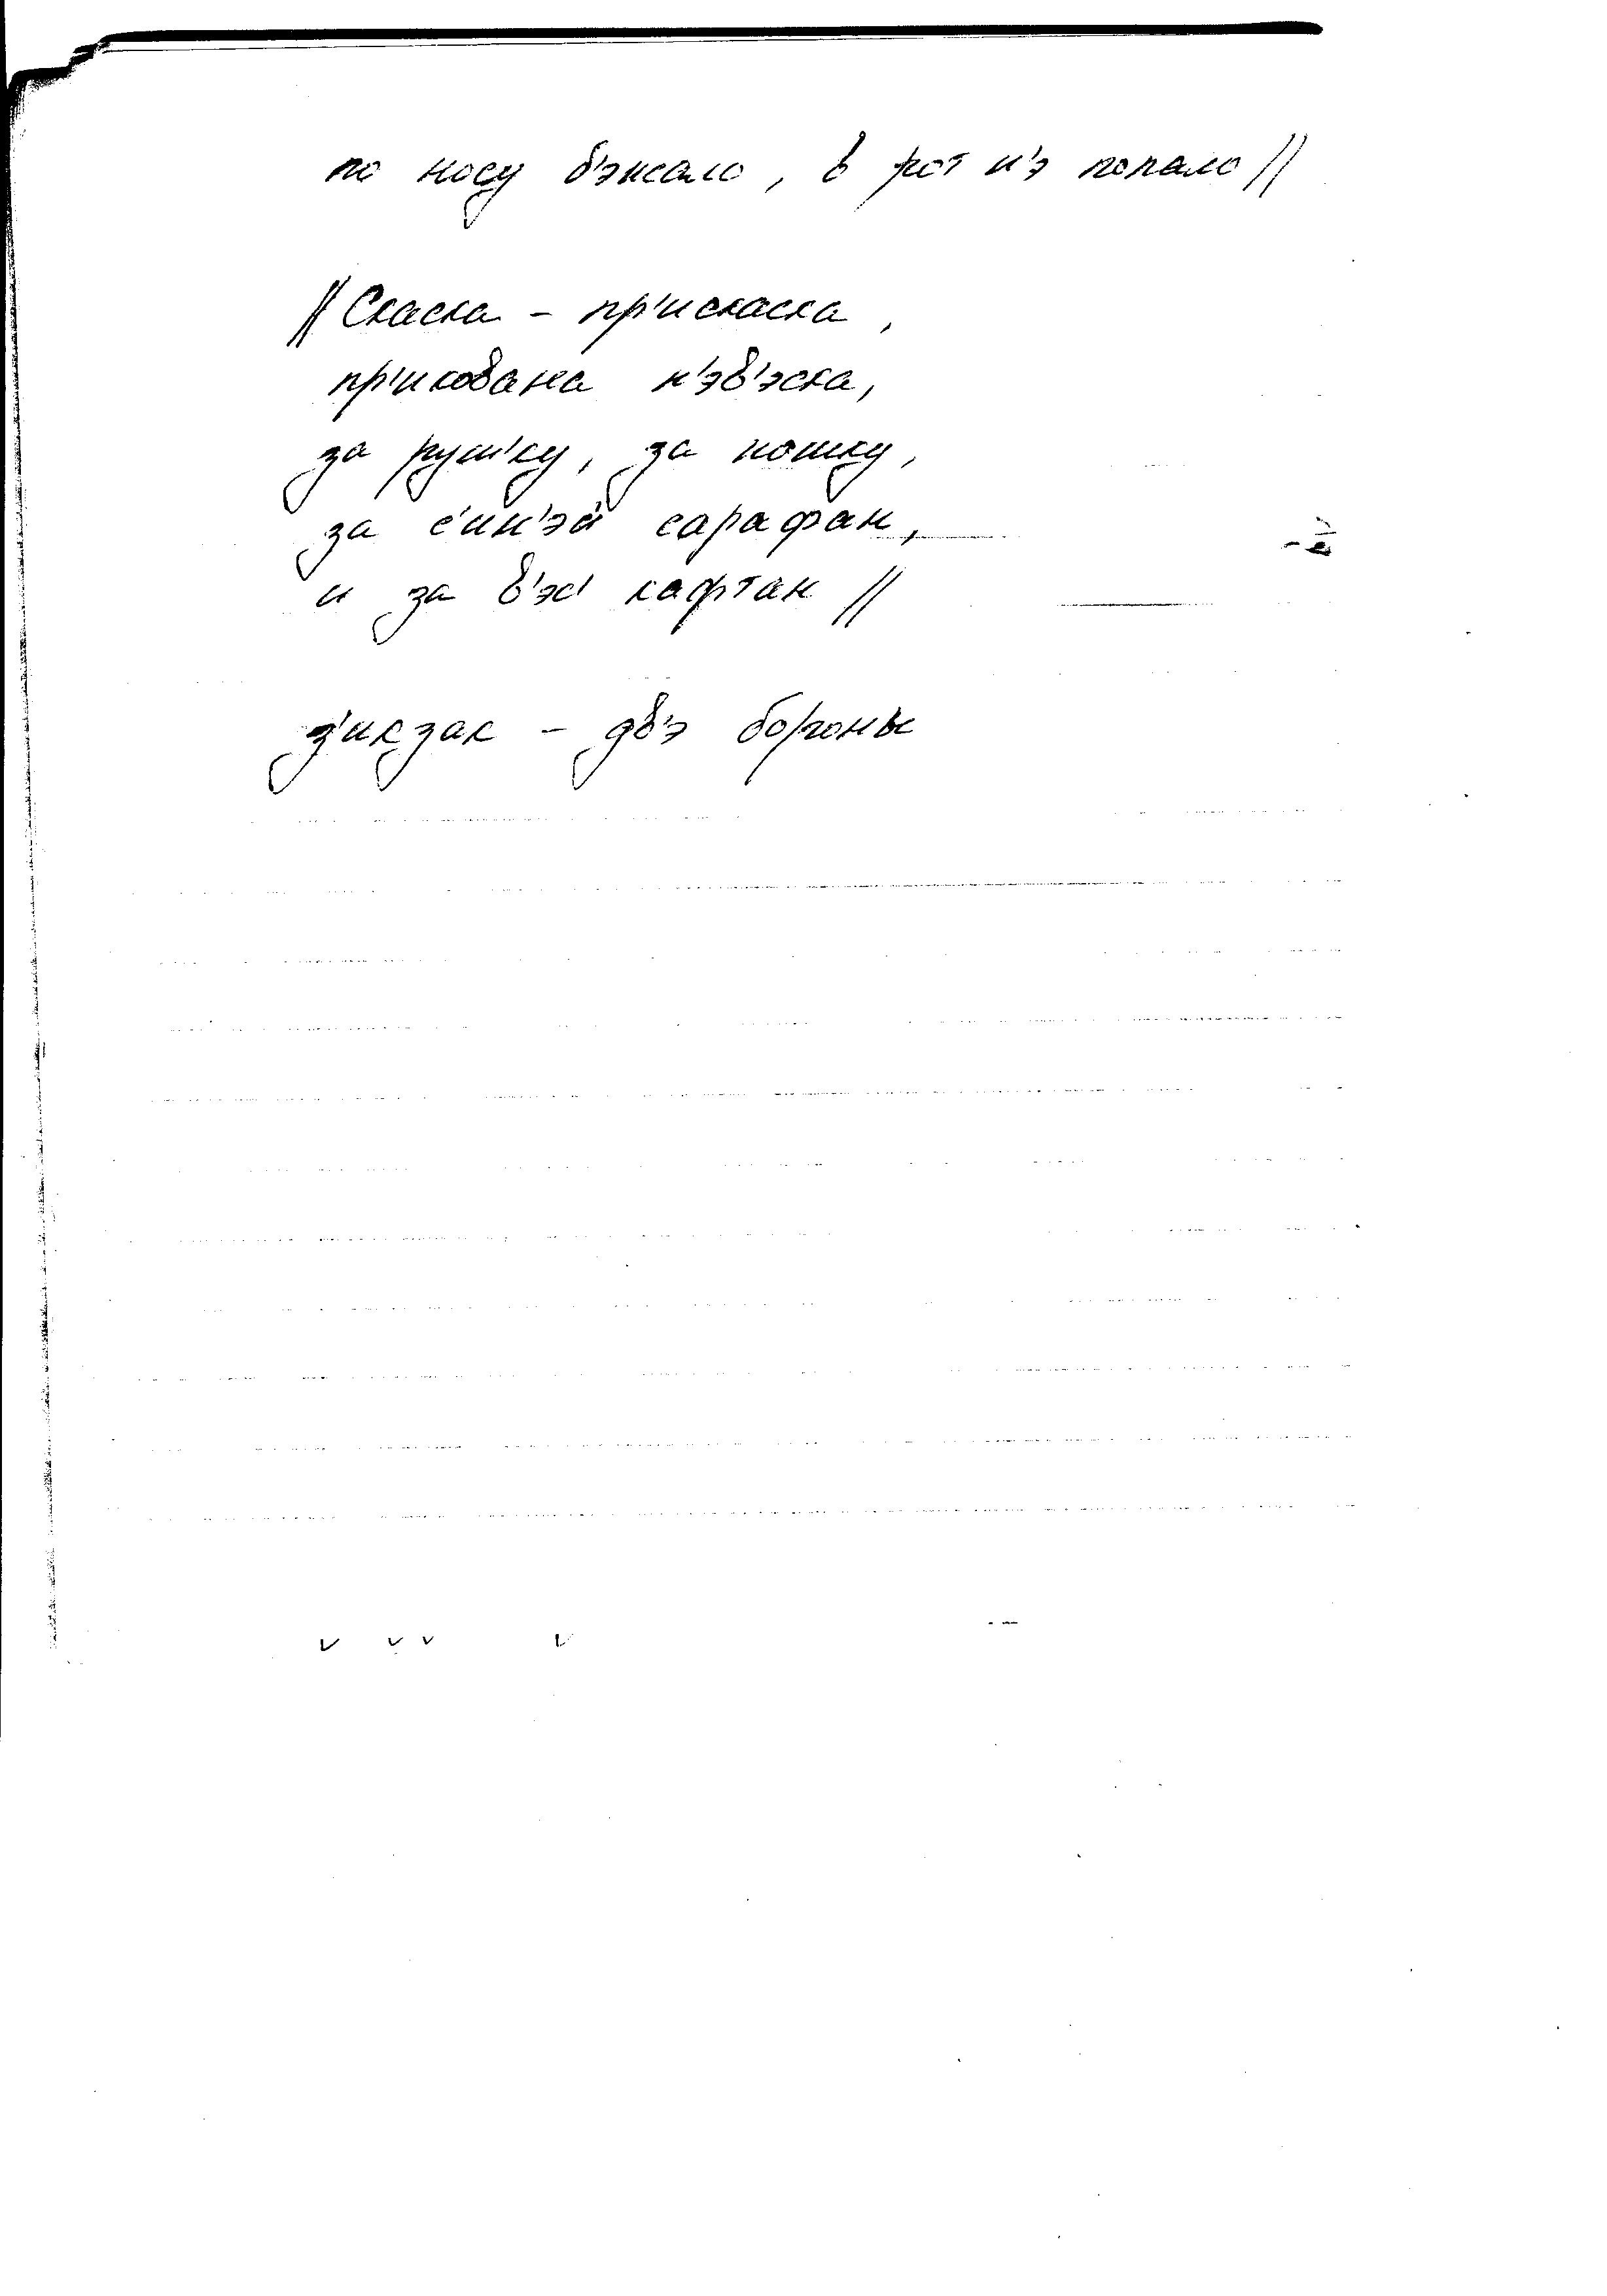 по носу б'эжало, в рот н'э попало //
// Скаска – пр'искаска,
пр'икована н'эв'эска,
за ручку, за ношку,
за с'ин'эй сарафан,
и за в'эс' кафтан //
з'икзак – дв'э бороны